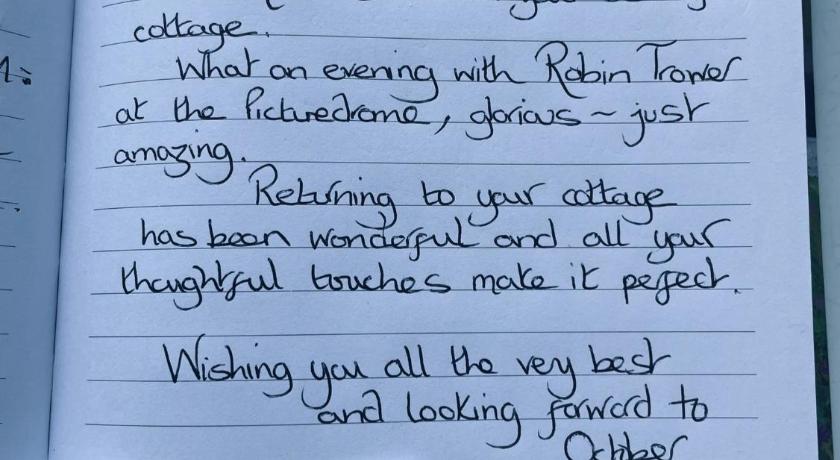 cottage.
What an evening with Robin Trower
at the Picturedrome, glorious ~ just
amazing.
Returning to your cottage
has been wonderful and all your
thoughtful touches make it perfect.
Wishing you all the very best
and looking forward to
October